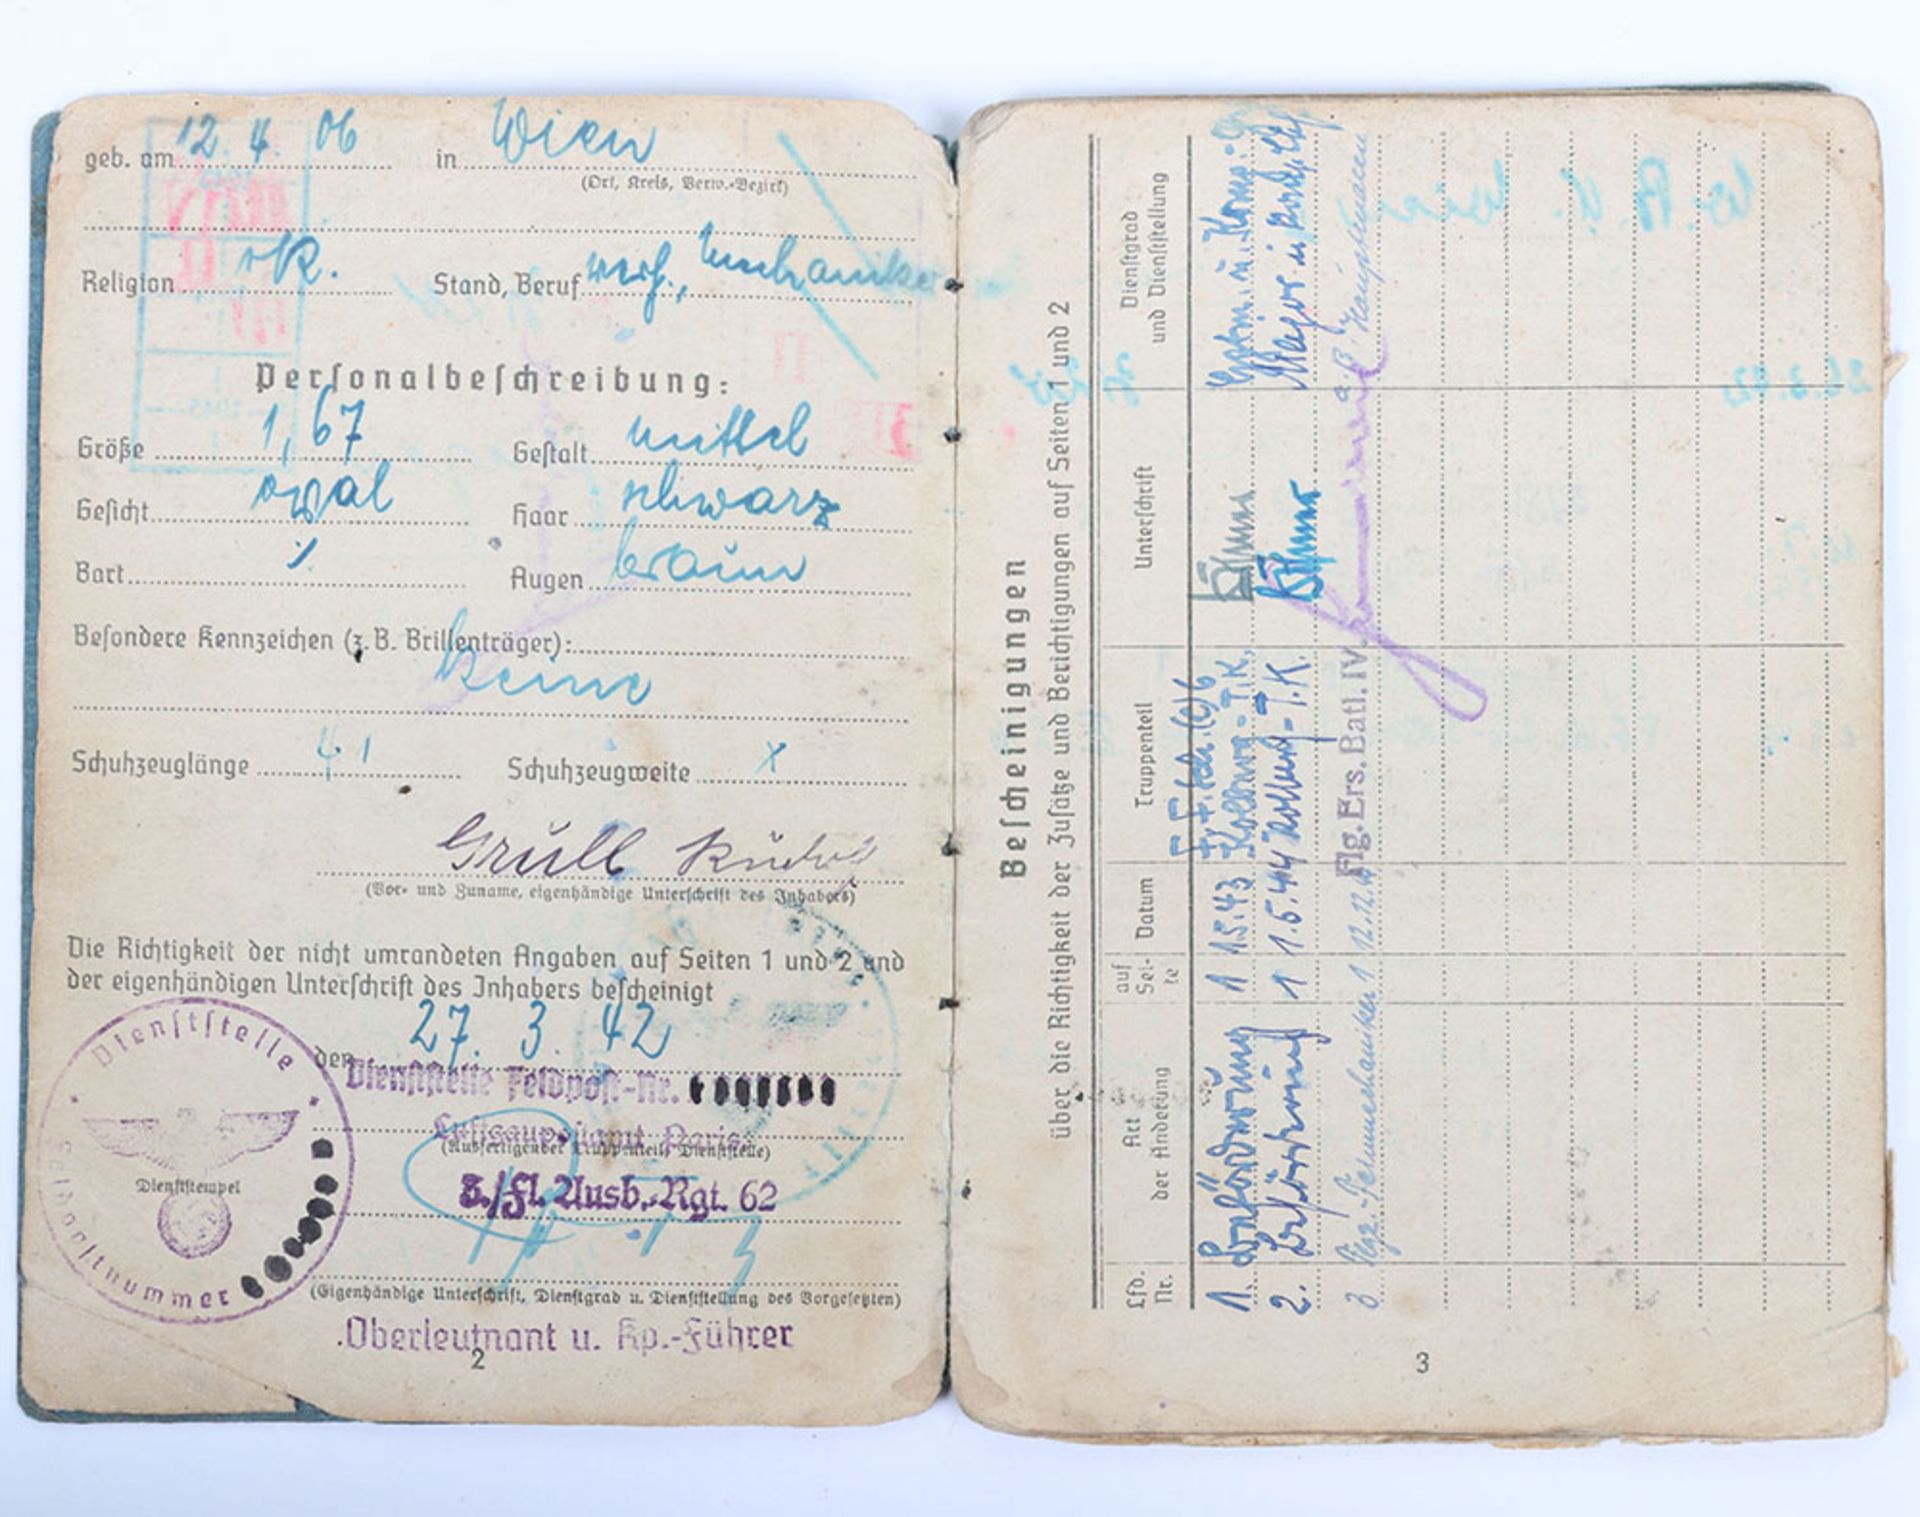 geb. am 12. 4. 06 in Wien
(Ort, Kreis, Verw.-Bezirk)
Religion rk. Stand, Beruf verh., Mechaniker
Personalbeschreibung:
Größe 1,67 Gestalt mittel
Gesicht oval Haar schwarz
Bart ./. Augen braun
Besondere Kennzeichen (z. B. Brillenträger):
keine
Schuhzeuglänge 41 Schuhzeugweite x
Grüll Rudolf
(Vor- und Zuname, eigenhändige Unterschrift des Inhabers)
Die Richtigkeit der nicht umrandeten Angaben auf Seiten 1 und 2 und
der eigenhändigen Unterschrift des Inhabers bescheinigt
den 27. 3. 42
Dienststelle Feldpost-Nr.
Luftgaupostamt Paris
(Ausfertigender Truppenteil, Dienststelle)
3./Fl. Ausb.-Rgt. 62
(Eigenhändige Unterschrift, Dienstgrad u. Dienststellung des Vorgesetzten)
Oberleutnant u. Kp.-Führer
Dienststelle
Dienststempel
Feldpostnummer
2
Bescheinigungen
über die Richtigkeit der Zusätze und Berichtigungen auf Seiten 1 und 2
Lfd. Nr. Art der Änderung auf Sei- te Datum Truppenteil Unterschrift Dienstgrad und Dienststellung
1. Beförderung 1 1.5.43 Kolberg - T.K.
2. Beförderung 1 1.5.44 Kolberg - T.K. Major
3 Flgz.-Feinmechaniker 1 12.12. Flg. Ers. Batl. IV. Hauptmann
3